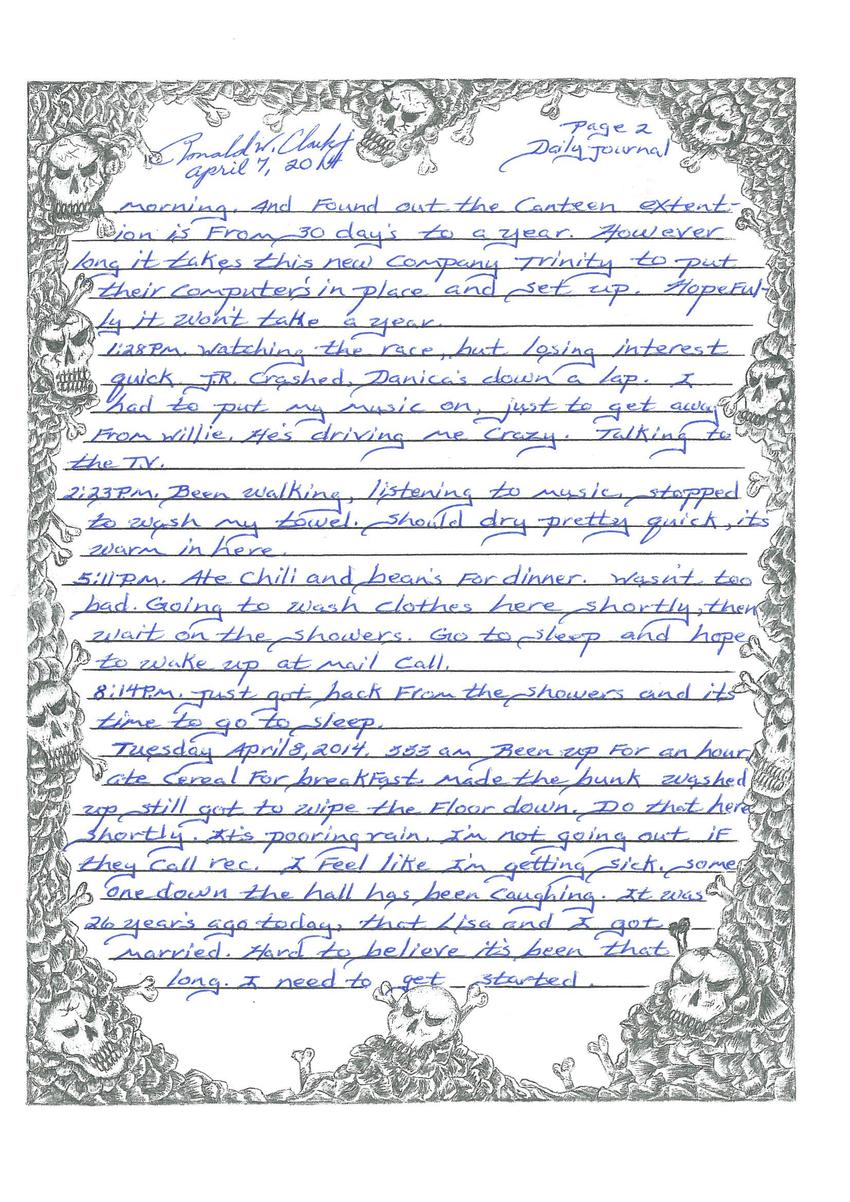 Ronald W. Clark Jr
April 7, 2014
Page 2
Daily Journal
morning. And Found out the Canteen extent-
ion is From 30 day's to a year. However
long it takes this new Company Trinity to put
their Computer's in place and set up. HopeFul-
ly it won't take a year.
1:28 P.M. Watching the race, but losing interest
quick J.R. Crashed. Danica's down a lap. I
had to put my music on, just to get away
From Willie. He's driving me Crazy. Talking to
the T.V.
2:23 P.M. Been walking, listening to music, stopped
to wash my towel. Should dry pretty quick, it's
warm in here.
5:11 P.M. Ate Chili and bean's For dinner. Wasn't too
bad. Going to wash clothes here shortly, then
wait on the showers. Go to sleep and hope
to wake up at Mail Call.
8:14 P.M. Just got back From the showers and its
time to go to sleep.
Tuesday April 8, 2014. 333 am Been up For an hour,
ate Cereal For breakFast. Made the bunk washed
up still got to wipe the Floor down. Do that here
shortly. It's pooring rain. I'm not going out iF
they Call rec. I Feel like I'm getting sick. some
one down the hall has been Caughing. It was
26 year's ago today, that Lisa and I got
married. Hard to believe it's been that
long. I need to get started.